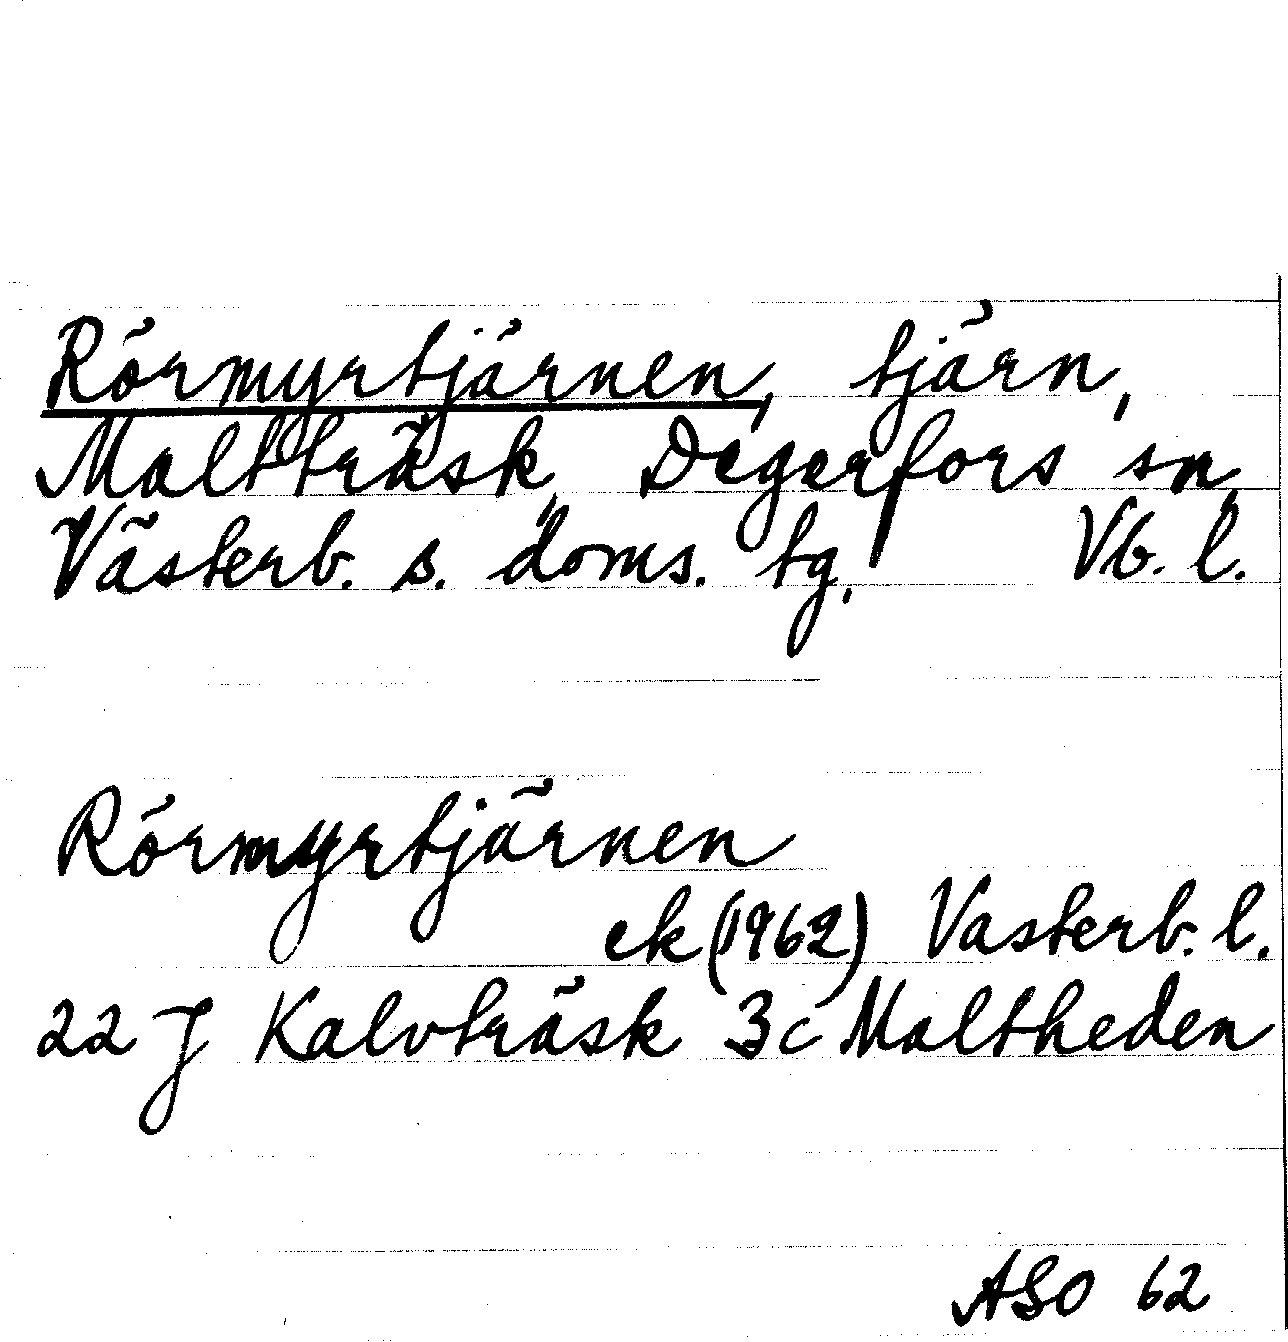 Rörmyrtjärnen, tjärn,
Maltträsk, Degerfors sn,
Västerb. s. doms. tg,  Vb. l.
Rörmyrtjärnen
ek (1962) Västerb. l.
22 J Kalvträsk 3c Maltheden
ASO 62